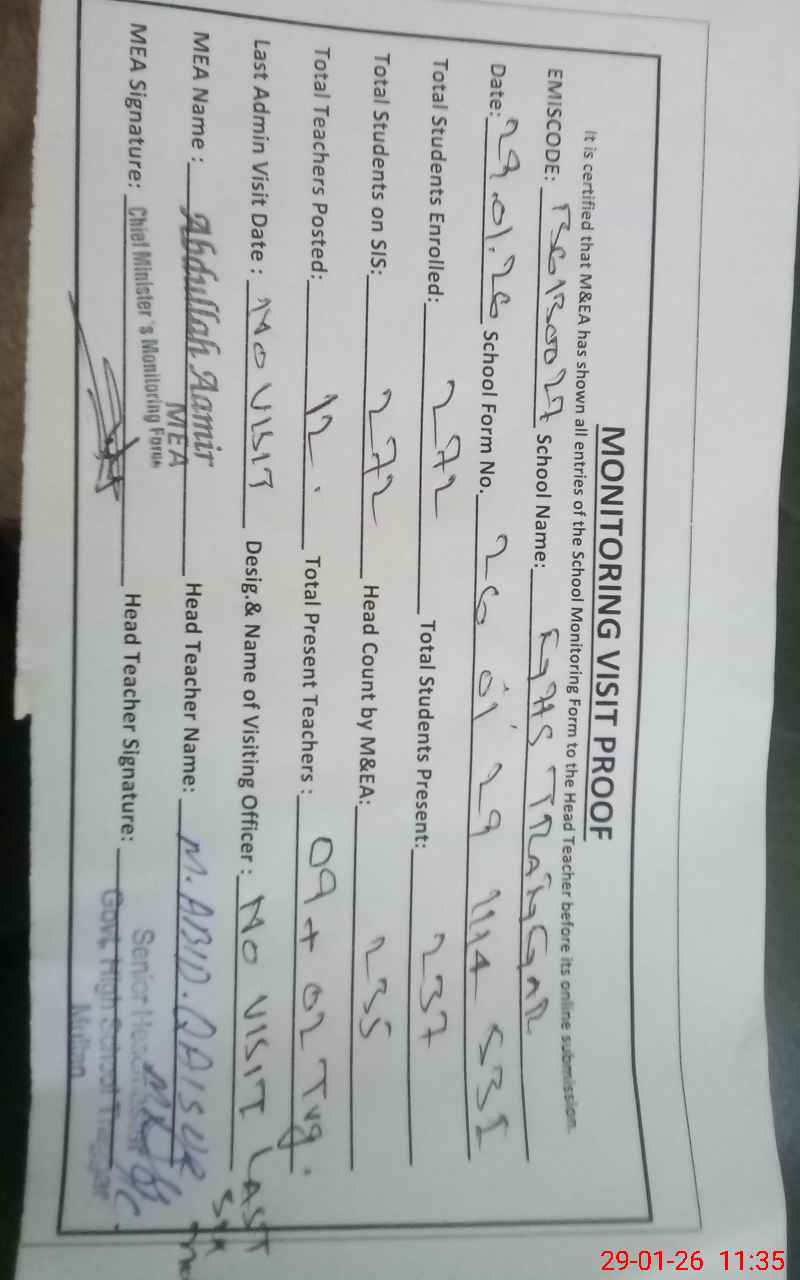 MONITORING VISIT PROOF
It is certified that M&EA has shown all entries of the School Monitoring Form to the Head Teacher before its online submission.
EMISCODE: School Name: TRAINGAR
Date: 29.01.26 School Form No. 26 01 29 1114 535
Total Students Enrolled: 272 Total Students Present: 237
Total Students on SIS: 272 Head Count by M&EA: 235
Total Teachers Posted: 12. Total Present Teachers : 09 + 02 Tvg.
Last Admin Visit Date : NO VISIT Desig.& Name of Visiting Officer : NO VISIT LAST
MEA Name : Abdullah Aamir Head Teacher Name: M. ABID. QAISUR
MEA
MEA Signature: Chief Minister's Monitoring Force Head Teacher Signature:
Senior
Govt. High School
Multan
29-01-26 11:35